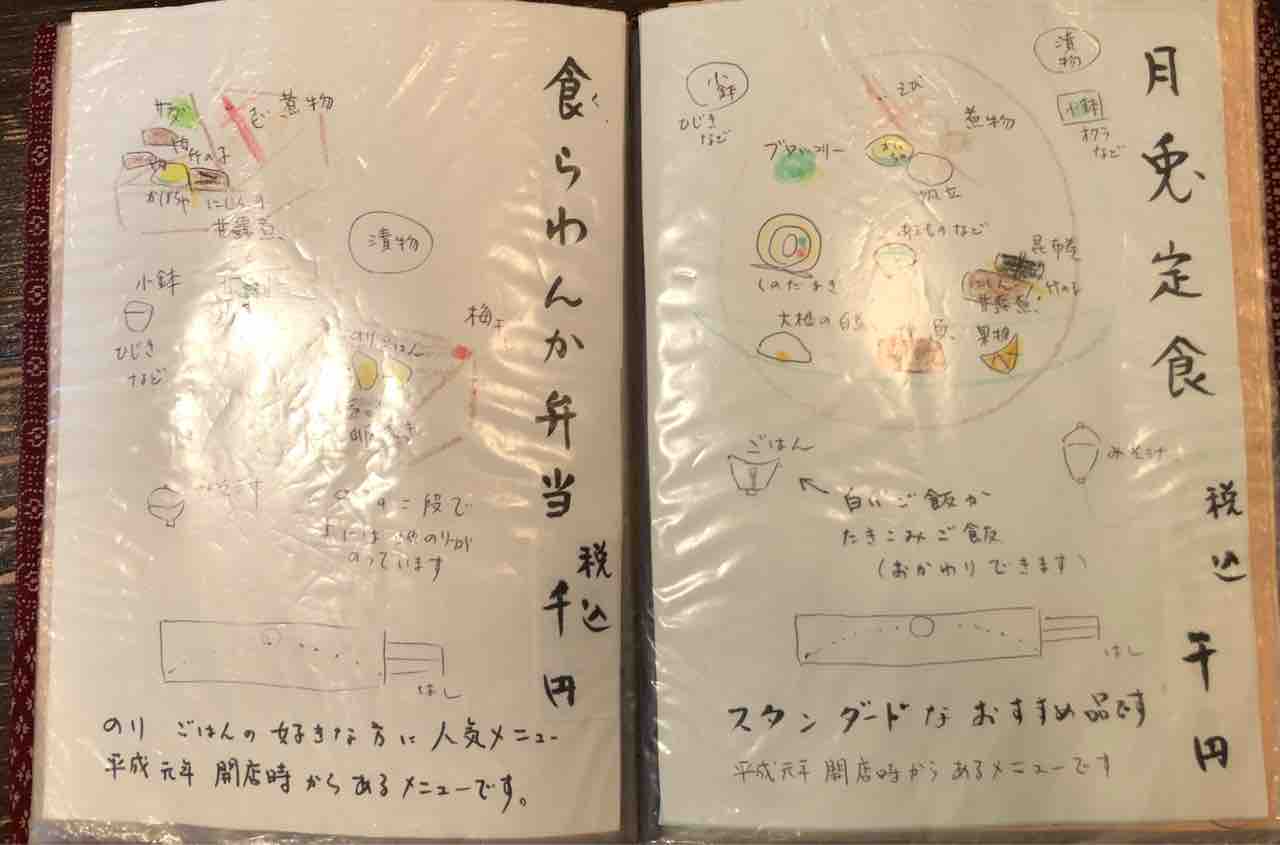 食らわんか弁当
く
税込
千円
サラダ
えび
煮物
竹の子
かぼちゃ
にしんの
甘露煮
漬物
小鉢
ひじき
など
梅干
のりごはん
みそ汁
二段で
のりが
のっています
はし
のり ごはんの好きな方に人気メニュー
平成元年 開店時からあるメニューです。
月兎定食
税込
千円
漬物
小鉢
オクラ
など
小鉢
ひじき
など
えび
煮物
ブロッコリー
帆立
あえものなど
昆布巻
しのだまき
にしん
竹の子
甘露煮
魚
果物
ごはん
みそ汁
白いご飯か
たきこみご飯
(おかわりできます)
はし
スタンダードなおすすめ品です
平成元年 開店時からあるメニューです